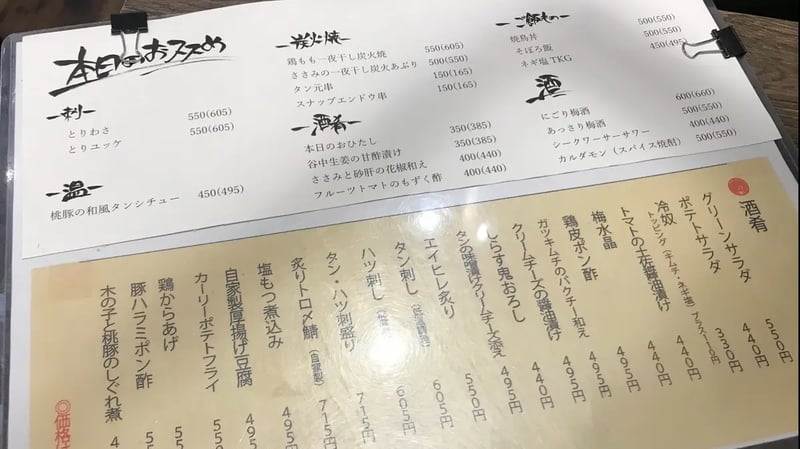 本日のおススメ
刺
とりわさ 550(605)
とりユッケ 550(605)
温
桃豚の和風タンシチュー 450(495)
炭火焼
鶏もも一夜干し炭火焼 550(605)
ささみの一夜干し炭火あぶり 500(550)
タン元串 150(165)
スナップエンドウ串 150(165)
酒肴
本日のおひたし 350(385)
谷中生姜の甘酢漬け 350(385)
ささみと砂肝の花椒和え 400(440)
フルーツトマトのもずく酢 400(440)
ご飯もの
焼鳥丼 500(550)
そぼろ飯 500(550)
ネギ塩TKG 450(495)
酒
にごり梅酒 600(660)
あっさり梅酒 500(550)
シークワーサーサワー 400(440)
カルダモン(スパイス焼酎) 500(550)
酒肴
グリーンサラダ 550円
ポテトサラダ 330円
冷奴 440円
トッピング(キムチ・ネギ塩)プラス110円
トマトの土佐醤油漬け 440円
梅水晶 495円
鶏皮ポン酢 495円
ガツキムチのパクチー和え 440円
クリームチーズの醤油漬け 495円
しらす鬼おろし 495円
タンの味噌漬けクリームチーズ添え 550円
エイヒレ炙り 605円
タン刺し 605円
ハツ刺し 715円
タン・ハツ刺盛り 715円
炙りトロ〆鯖(自家製) 495
塩もつ煮込み 495
自家製厚揚げ豆腐 550
カーリーポテトフライ 55
鶏からあげ 55
豚ハラミポン酢
木の子と桃豚のしぐれ煮 4
◎価格